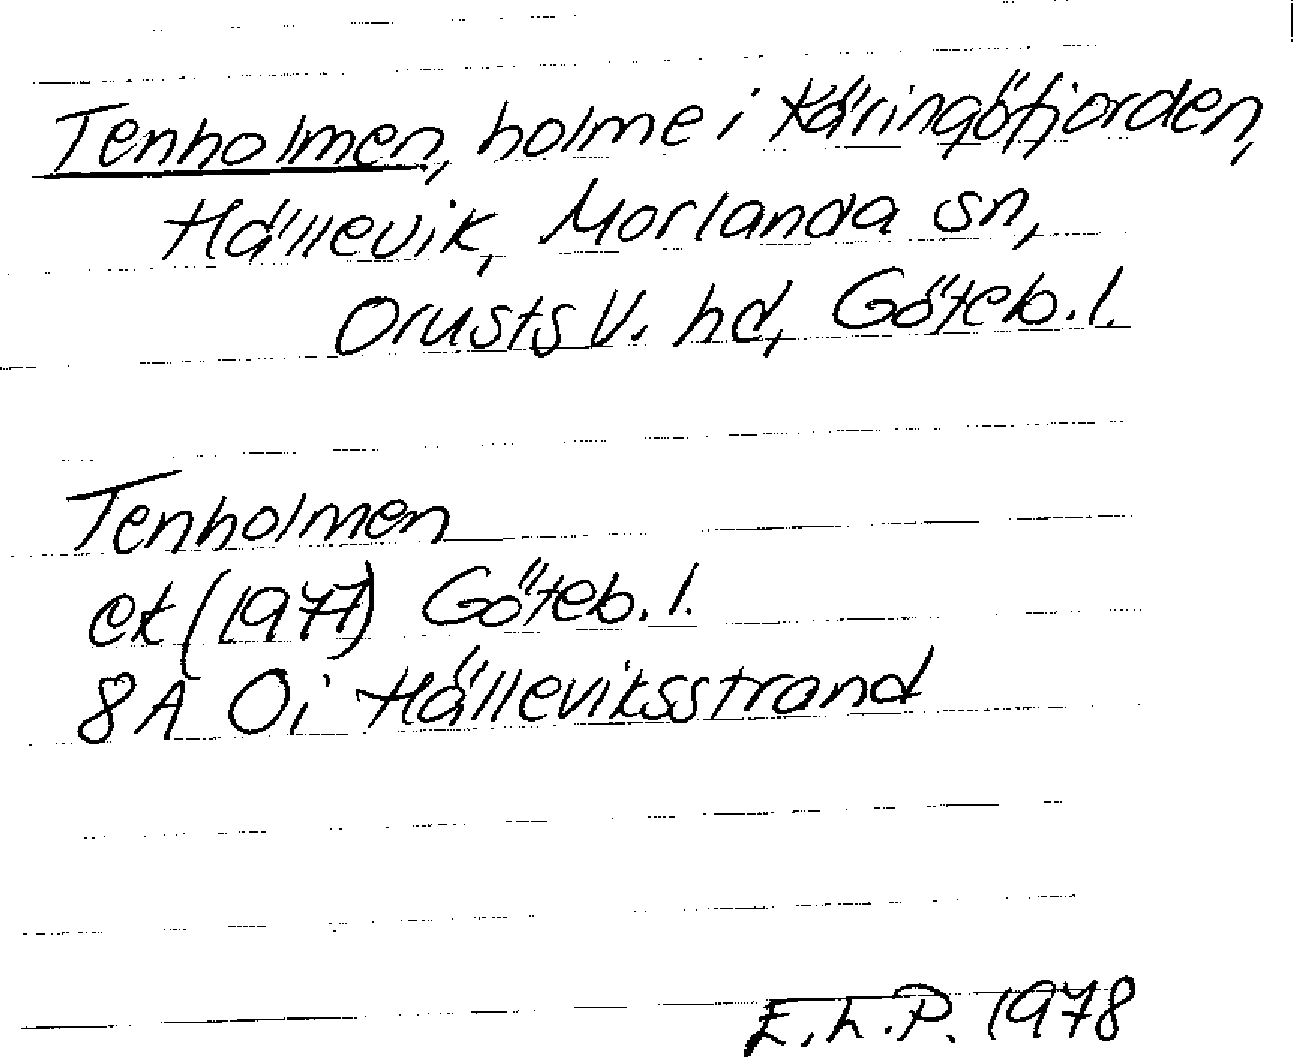 Tenholmen, holme i Käringöfjorden,
Hällevik, Morlanda sn,
Orusts V. hd, Göteb. l.
Tenholmen
ek (1977) Göteb. l.
8A 0i Hälleviksstrand
E.L.P. 1978